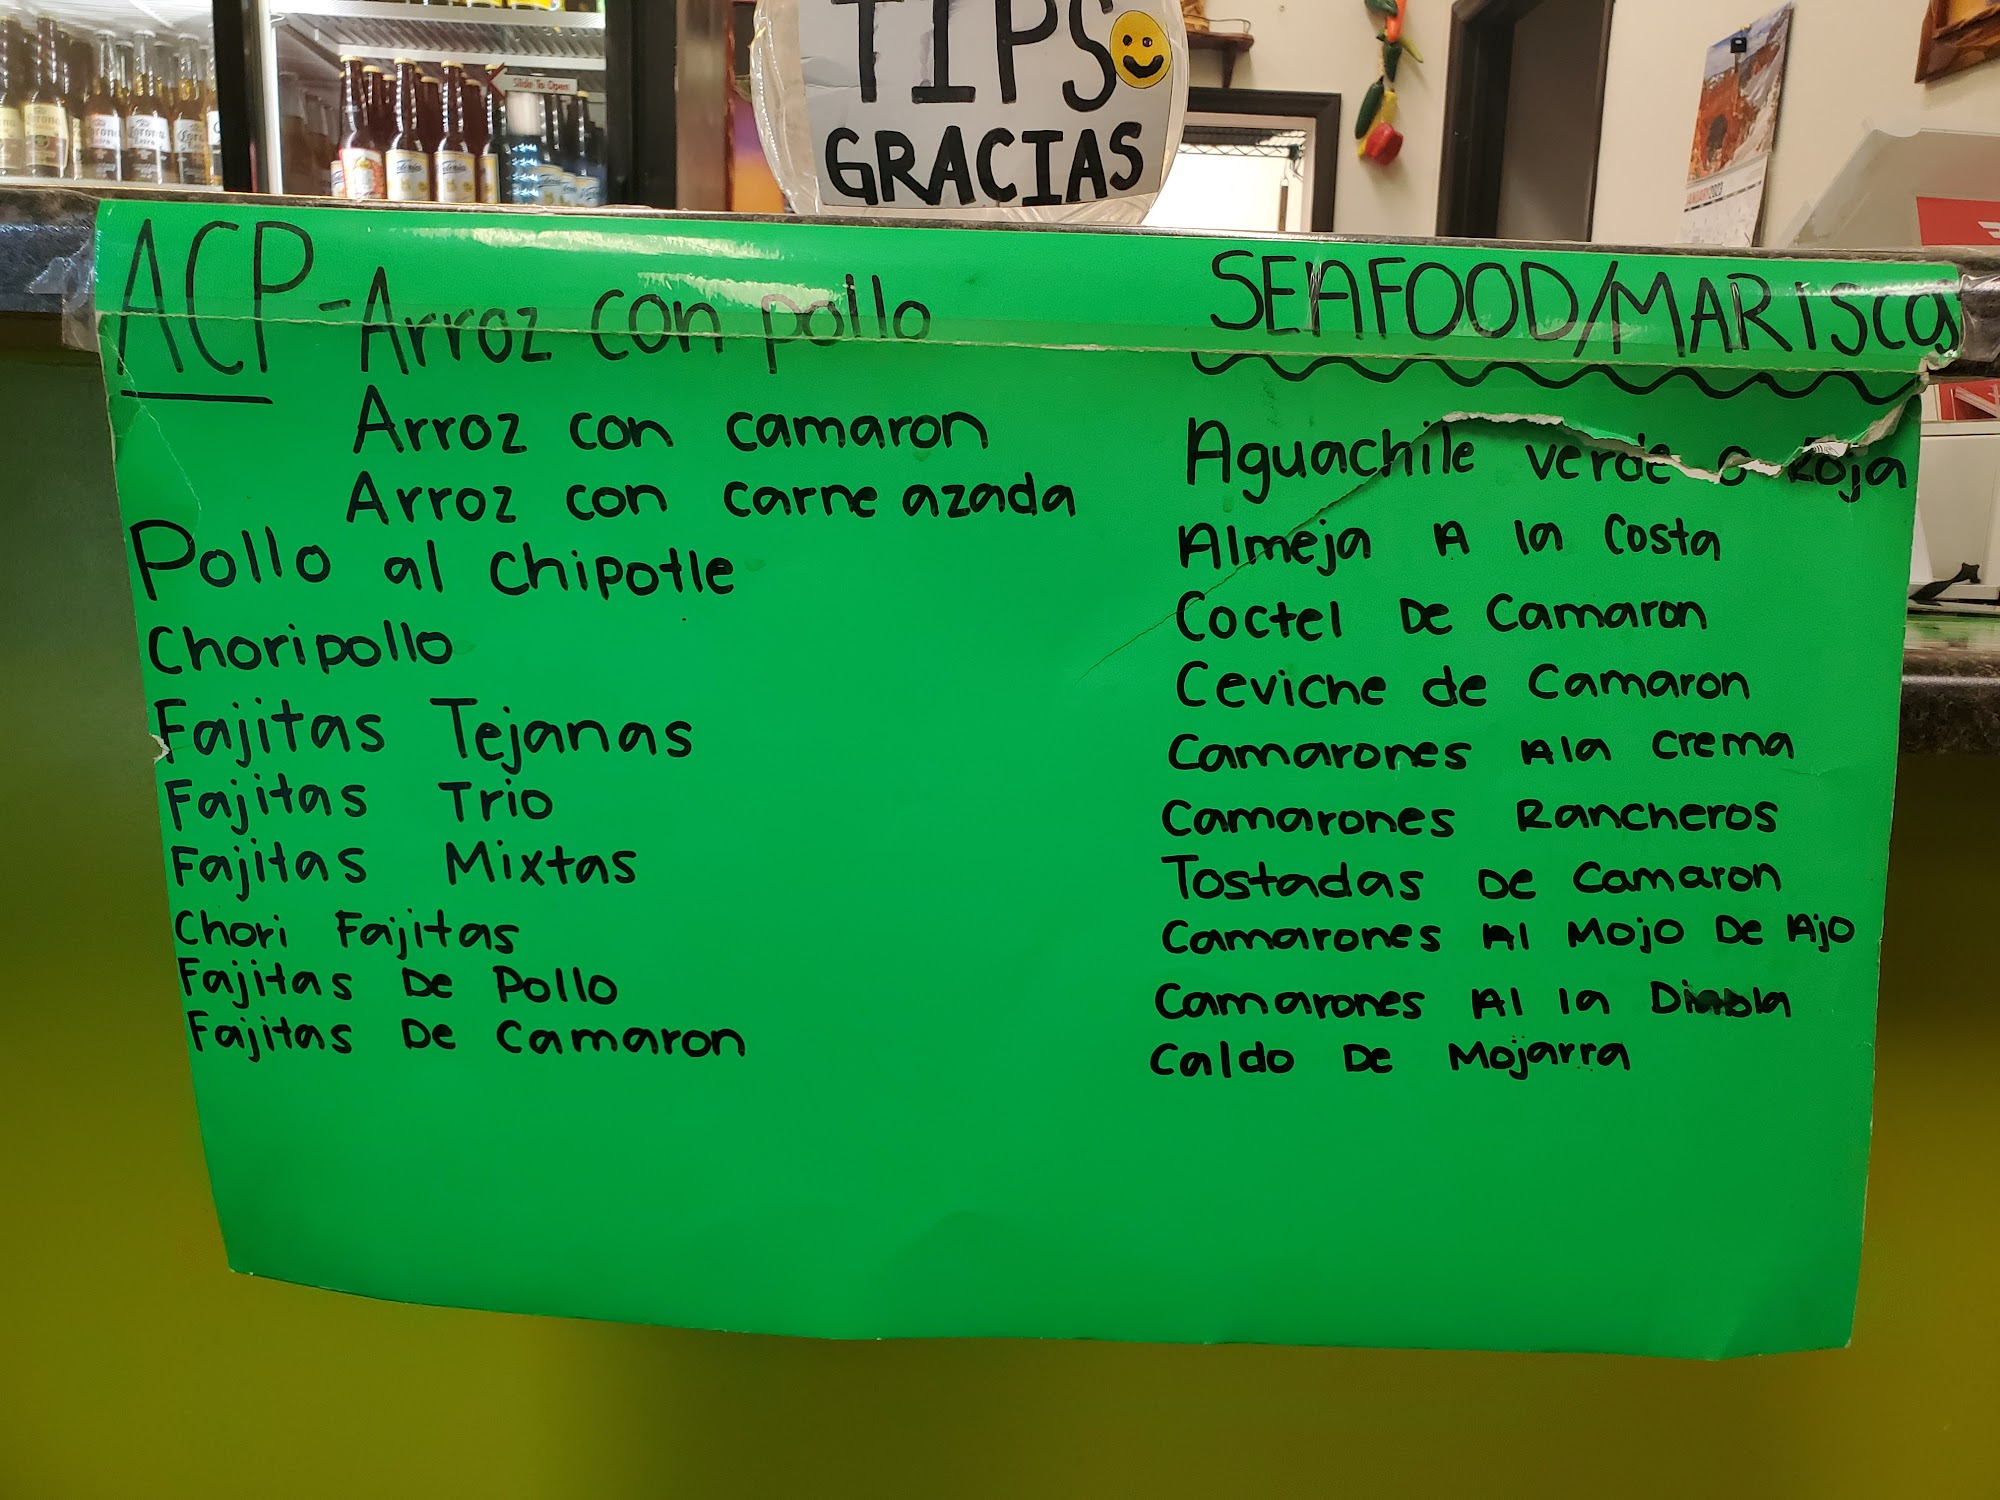 TIPS
GRACIAS
Slide To Open
Corona
Corona
Extra
ACP - Arroz con pollo
Arroz con camaron
Arroz con carne azada
Pollo al Chipotle
Choripollo
Fajitas Tejanas
Fajitas Trio
Fajitas Mixtas
Chori Fajitas
Fajitas De Pollo
Fajitas De Camaron
SEAFOOD/MARISCOS
Aguachile verde o Roja
Almeja A la Costa
Coctel De Camaron
Ceviche de Camaron
Camarones Ala Crema
Camarones Rancheros
Tostadas De Camaron
Camarones Al Mojo De Ajo
Camarones Al la Diabla
Caldo De Mojarra